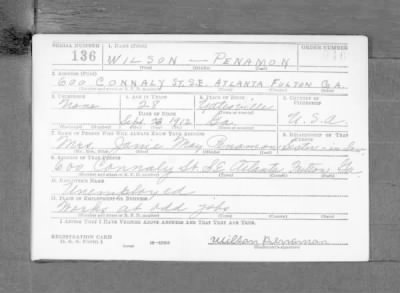 SERIAL NUMBER 1. NAME (Print) ORDER NUMBER
136 WILSON — PENAMON
(First) (Middle) (Last)
2. ADDRESS (Print)
600 CONNALY ST. S.E. ATLANTA FULTON GA.
(Town) (County) (State)
3. TELEPHONE 4. AGE IN YEARS 5. PLACE OF BIRTH 6. COUNTRY OF CITIZENSHIP
None 28 Yatesville
DATE OF BIRTH
Sept. 1912 Ga. U.S.A.
7. NAME OF PERSON WHO WILL ALWAYS KNOW YOUR ADDRESS 8. RELATIONSHIP OF THAT PERSON
Mrs. Janie May Penamon Sister-in-law
9. ADDRESS OF THAT PERSON
600 Connaly St. S.E. Atlanta Fulton Ga.
10. EMPLOYER'S NAME
Unemployed
11. PLACE OF EMPLOYMENT OR BUSINESS
Works at odd jobs
I AFFIRM THAT I HAVE VERIFIED ABOVE ANSWERS AND THAT THEY ARE TRUE.
REGISTRATION CARD
D. S. S. FORM 1 (over) Wilson Penamon